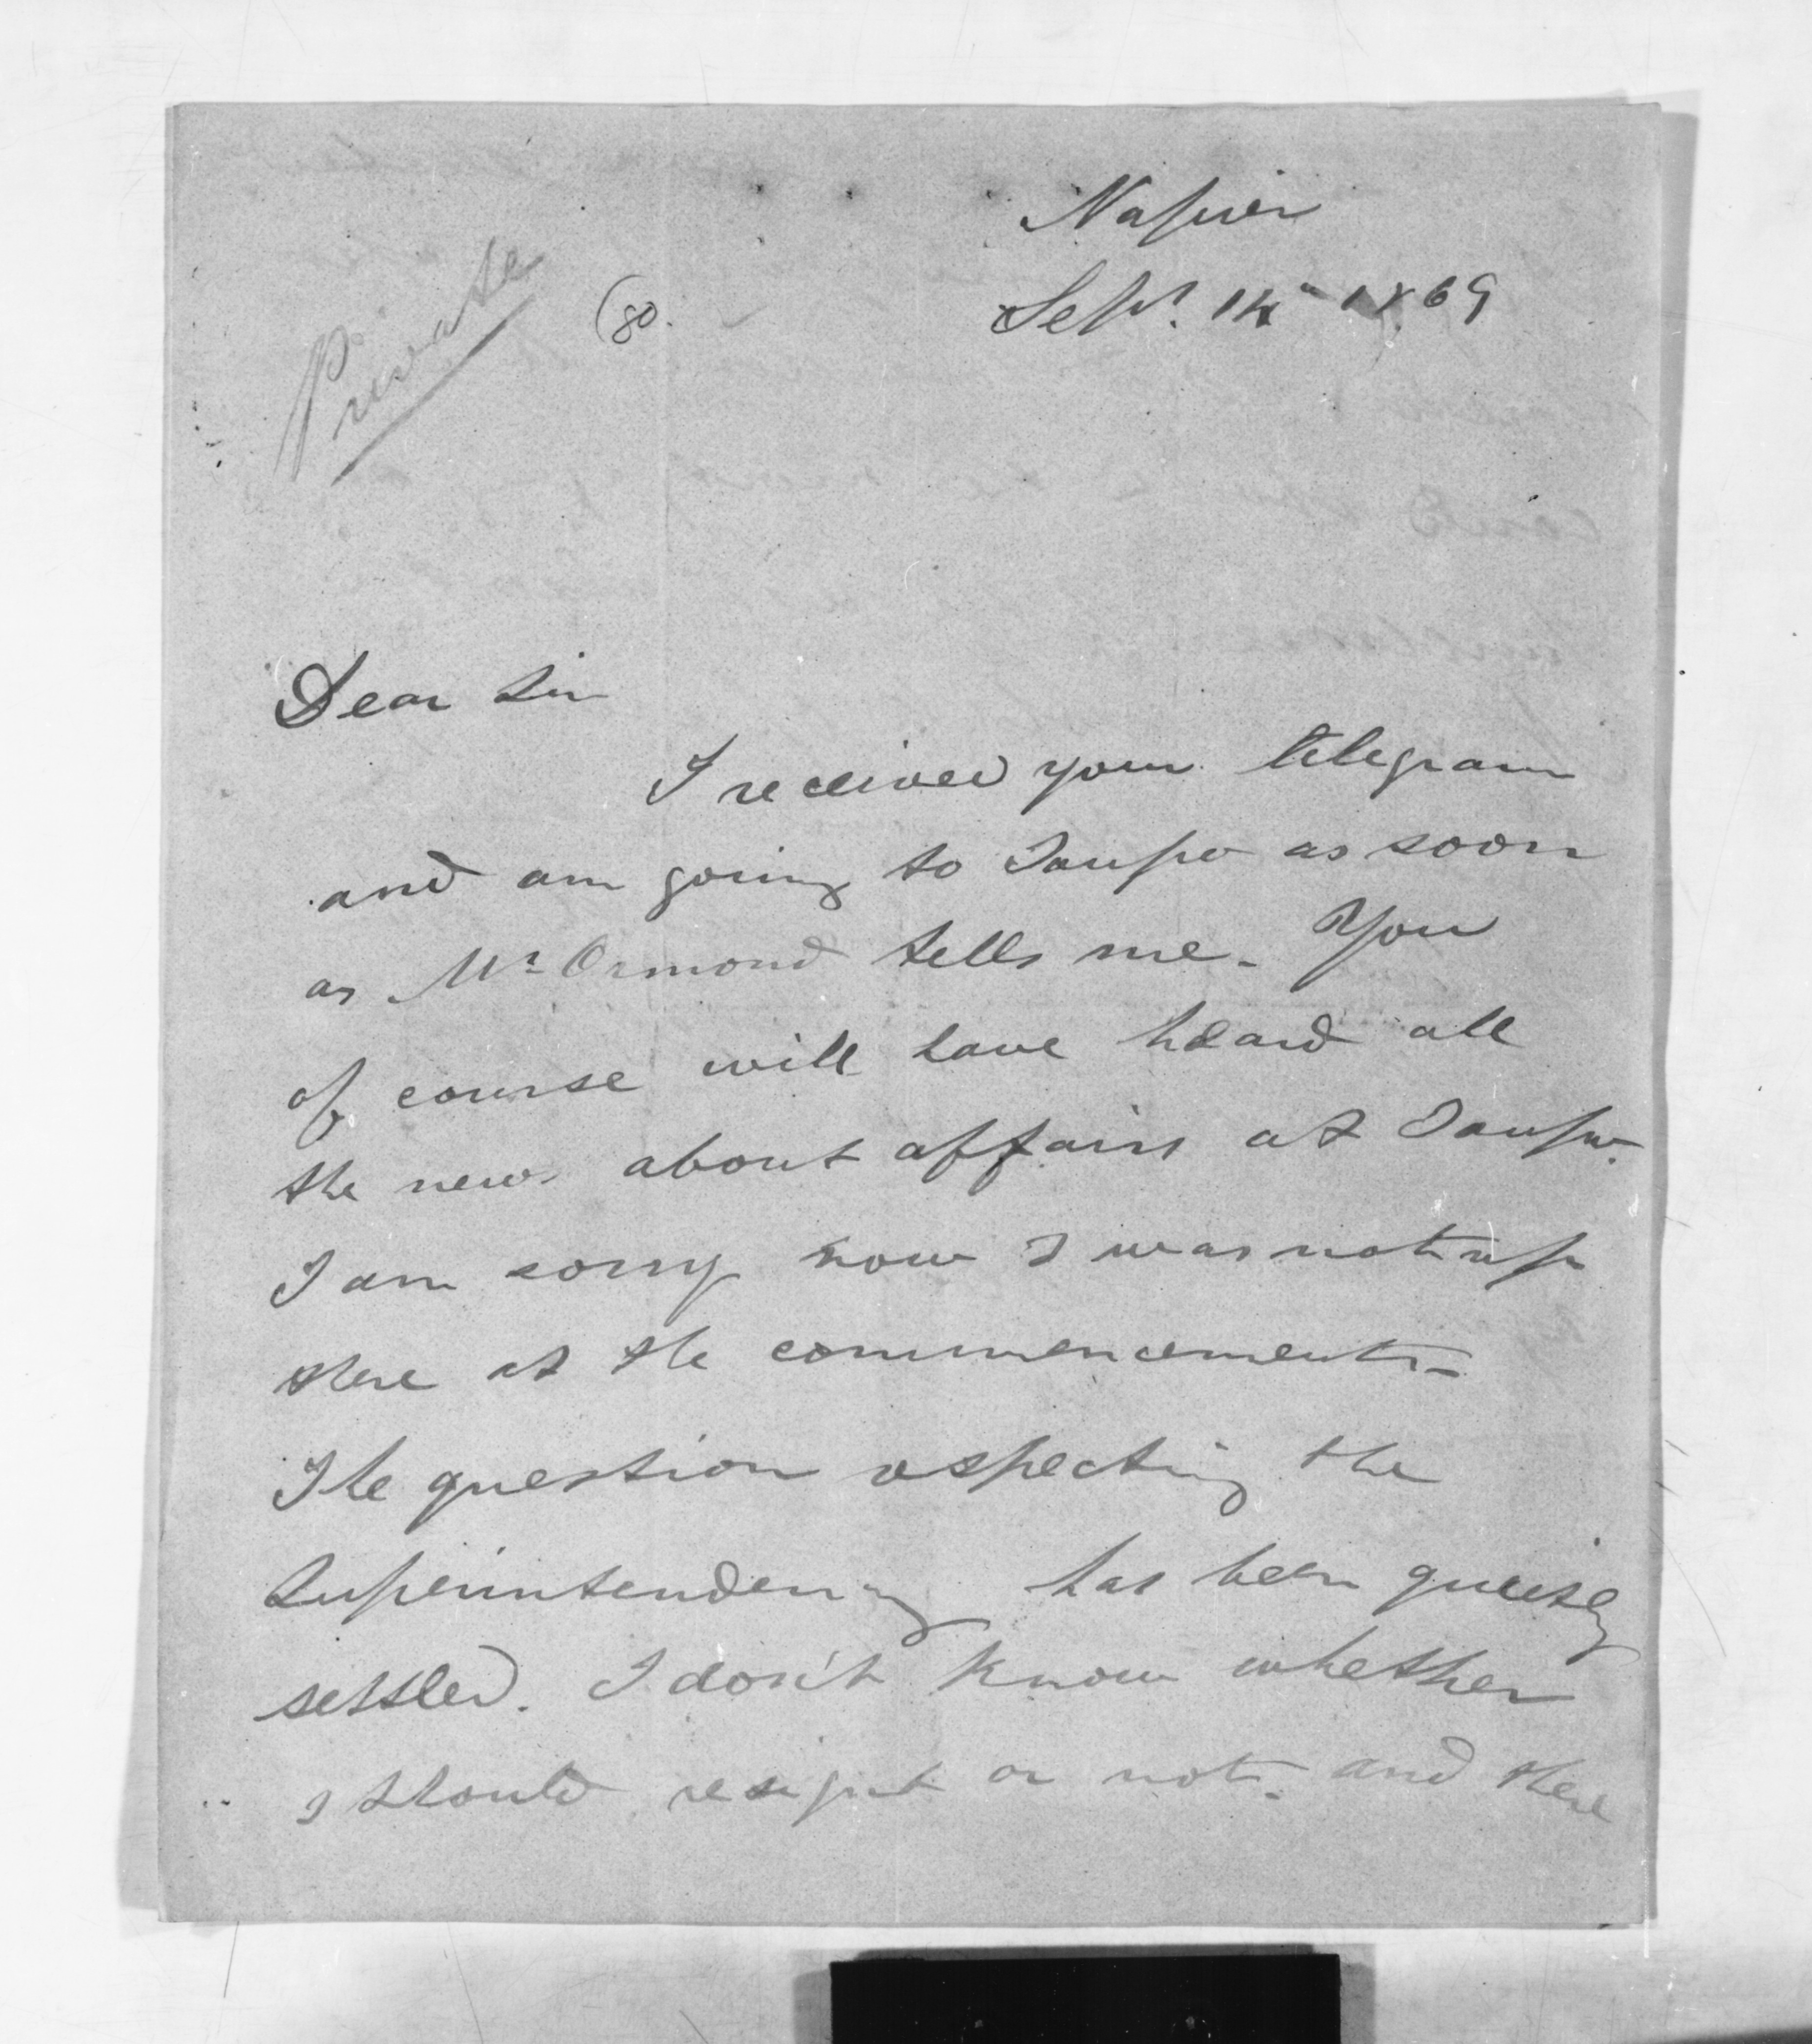 Napier
Sept. 14 1869
Private
(80.
Dear Sir
I received your telegram
and am going to Taupo as soon
as Mr Ormond tells me. You
of course will have heard all
the news about affairs at Taupo.
I am sorry now I was not up
there at the commencement-
The question respecting the
Superintendency has been quietly
settled. I don't know whether
I should or not. and there